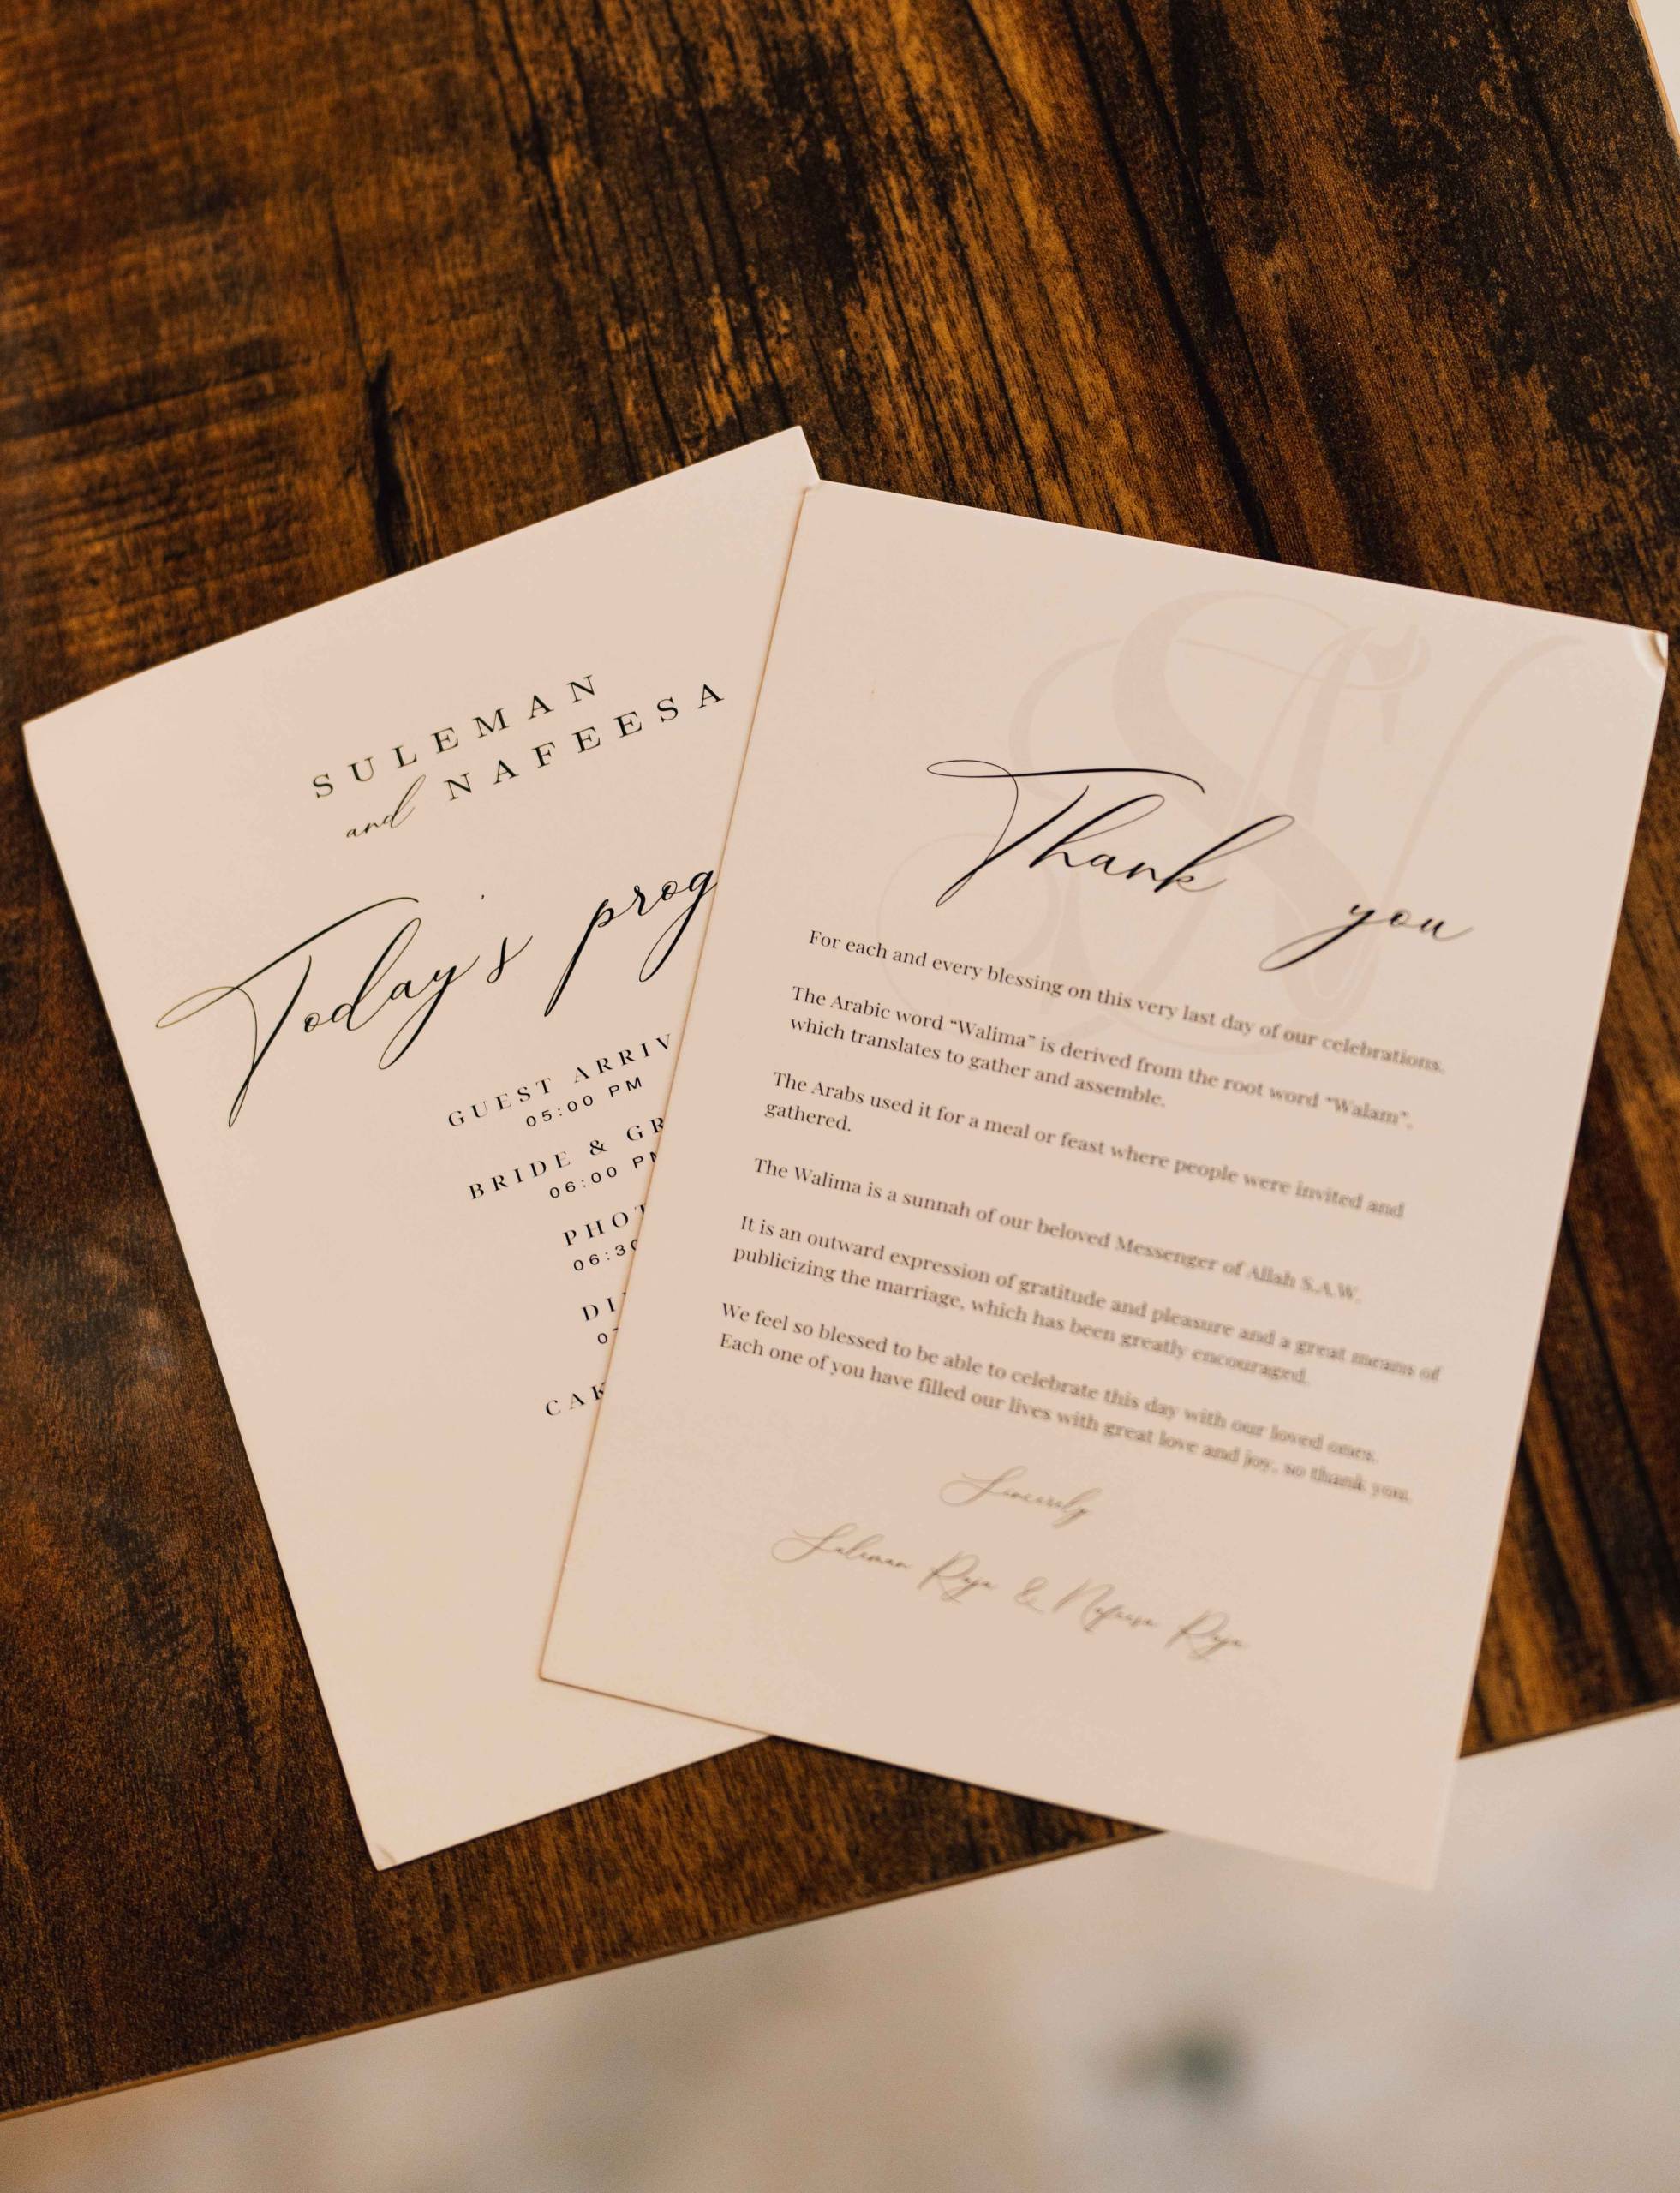 SULEMAN
and NAFEESA
Today's prog
GUEST ARRIV
05:00 PM
BRIDE & GR
06:00 PM
PHOT
06:30
DI
07
CAK
SN
Thank you
For each and every blessing on this very last day of our celebrations.
The Arabic word “Walima” is derived from the root word “Walam”,
which translates to gather and assemble.
The Arabs used it for a meal or feast where people were invited and
gathered.
The Walima is a sunnah of our beloved Messenger of Allah S.A.W.
It is an outward expression of gratitude and pleasure and a great means of
publicizing the marriage, which has been greatly encouraged.
We feel so blessed to be able to celebrate this day with our loved ones.
Each one of you have filled our lives with great love and joy, so thank you.
Sincerely
Suleman Raja & Nafeesa Raja